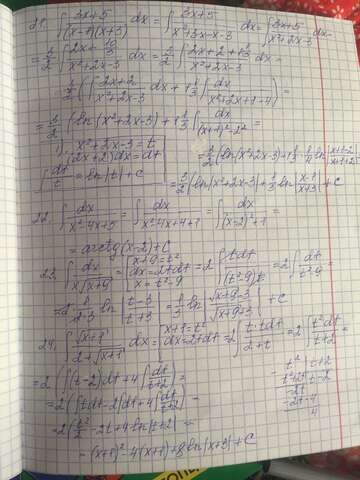 21. ∫ 3x+5 / (x-1)(x+3) dx = ∫ 3x+5 / x²+3x-x-3 dx = ∫ 3x+5 / x²+2x-3 dx =
= 3/2 ∫ 2x+ 10/3 / x²+2x-3 dx = 3/2 ∫ 2x+2+1 1/3 / x²+2x-3 dx =
3/2 (∫ 2x+2 / x²+2x-3 dx + 1 1/3 ∫ dx / x²+2x+1-4) =
= 3/2 (ln|x²+2x-3| + 1 1/3 ∫ dx / (x+1)²-2² =
x²+2x-3 = t
(2x+2)dx = dt
= 3/2 (ln|x²+2x-3| + 1 1/3 · 1/4 ln |x+1-2 / x+1+2|) =
∫ dt/t = ln|t| + C
= 3/2 ln|x²+2x-3| + 1/3 ln |x-1 / x+3| + C
22. ∫ dx / x²-4x+5 = ∫ dx / x²-4x+4+1 = ∫ dx / (x-2)²+1 =
= arctg(x-2)+C
23. ∫ dx / x√x+9 = | √x+9 = t dx = 2tdt x = t²-9 | = 2 ∫ tdt / (t²-9)t = 2 ∫ dt / t²-9 =
= 2 1/2·3 ln |t-3 / t+3| = 1/3 ln |√x+9-3 / √x+9+3| + C
24. ∫ √x+1 / 2+√x+1 dx = | x+1 = t² dx = 2tdt | = 2 ∫ t·tdt / 2+t = 2 ∫ t²dt / t+2 =
= 2 (∫(t-2)dt + 4 ∫ dt / t+2) =
= 2 (∫tdt - 2∫dt + 4 ∫ dt / t+2) =
= 2 (t²/2 - 2t + 4 ln|t+2|) =
t² | t+2
t²+2t | t-2
-2t
-2t-4
4
= (x+1)² - 4(x+1) + 8 ln|x+3| + C